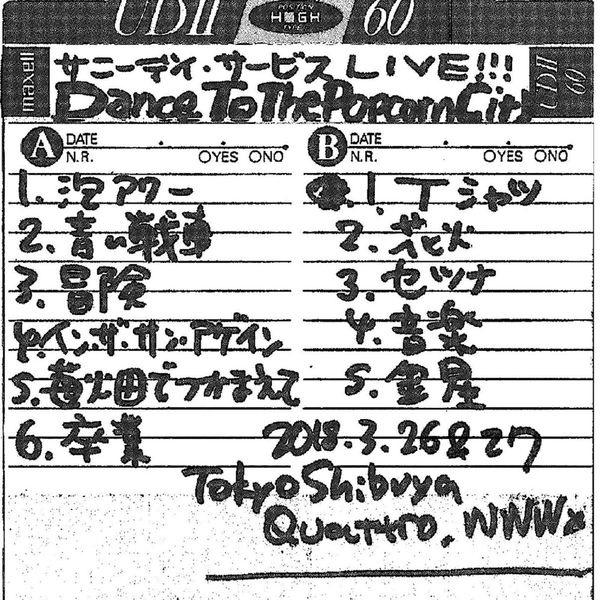 UDII POSITION HIGH TYPE 60
maxell サニーデイ・サービス LIVE!!! UDII 60
Dance To The Popcorn City
A DATE . . B DATE . .
N.R. OYES ONO N.R. OYES ONO
1. 泡アワー
2. 青い戦車
3. 冒険
4. イン・ザ・サン・アゲイン
5. 苺畑でつかまえて
6. 卒業
1. Tシャツ
2. 花火
3. セツナ
4. 音楽
5. 金星
2018.3.26&27
Tokyo Shibuya
Quattro, WWWx